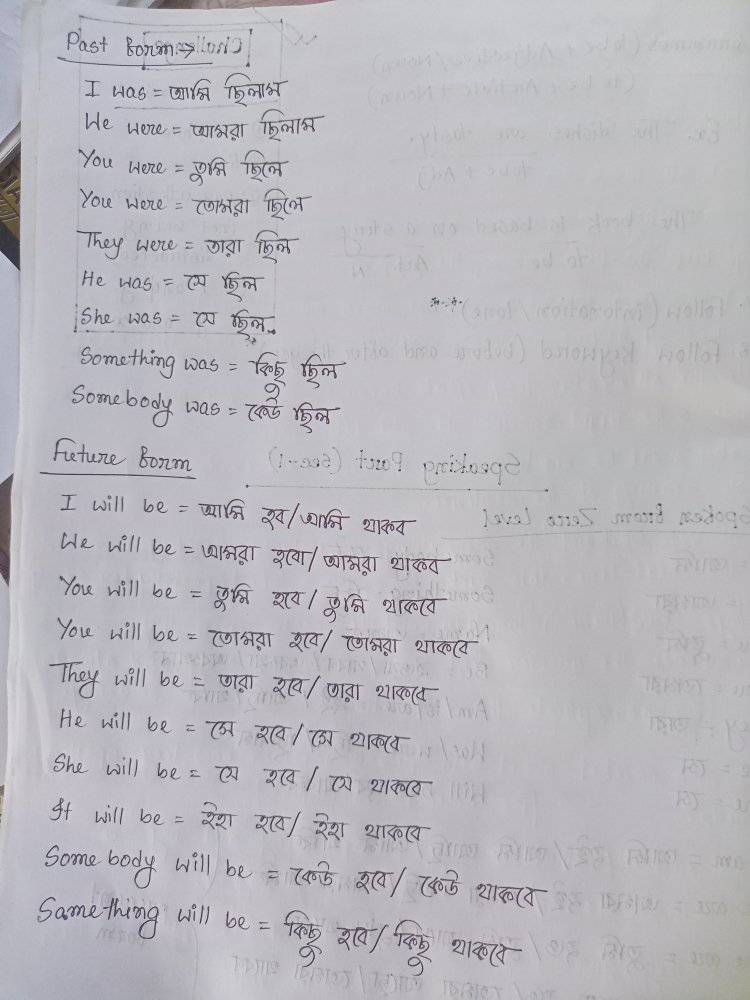 Past Form →
I was = আমি ছিলাম
We were = আমরা ছিলাম
You were = তুমি ছিলে
You were = তোমরা ছিলে
They were = তারা ছিল
He was = সে ছিল
She was = সে ছিল
Something was = কিছু ছিল
Somebody was = কেউ ছিল
Future Form
I will be = আমি হব/আমি থাকব
We will be = আমরা হবো/আমরা থাকব
You will be = তুমি হবে/তুমি থাকবে
You will be = তোমরা হবে/তোমরা থাকবে
They will be = তারা হবে/তারা থাকবে
He will be = সে হবে/সে থাকবে
She will be = সে হবে/সে থাকবে
It will be = ইহা হবে/ইহা থাকবে
Somebody will be = কেউ হবে/কেউ থাকবে
Samething will be = কিছু হবে/কিছু থাকবে